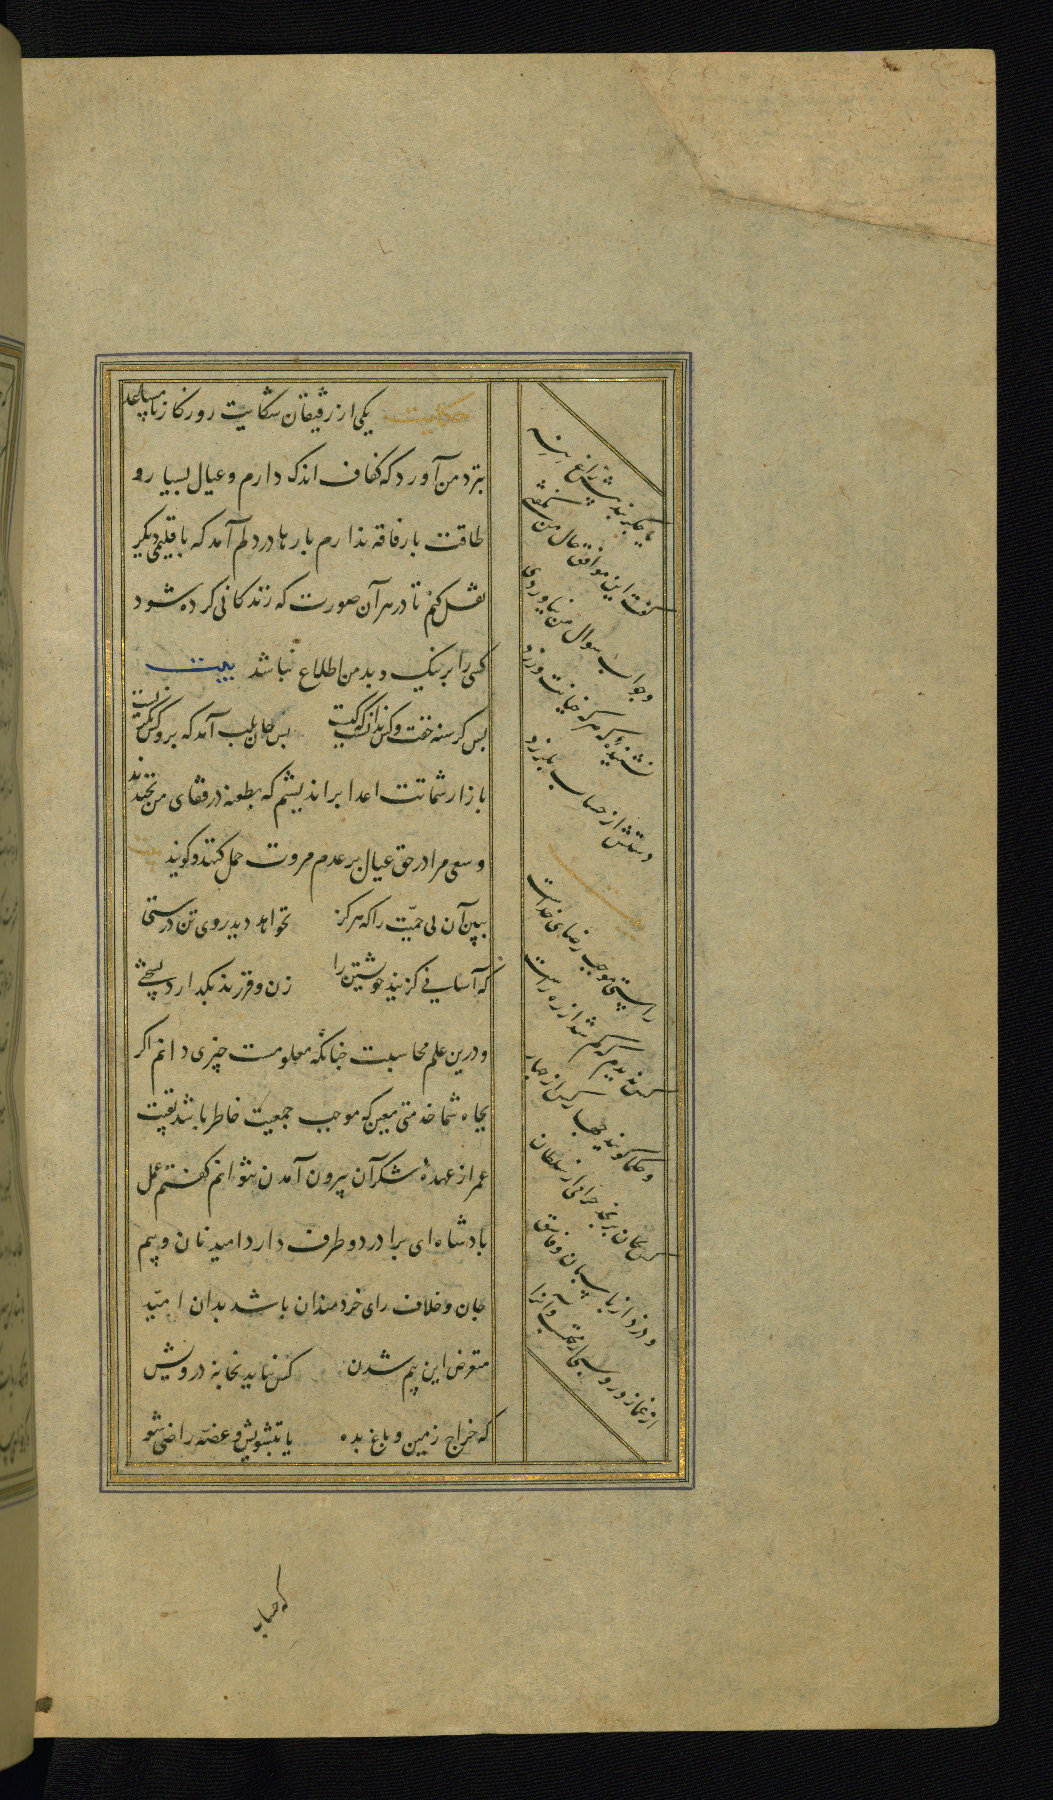 حکایت یکی از رفیقان شکایت روزکار نامساعد
بنزد من آورد که کفاف اندک دارم و عیال بسیار و
طاقت بار فاقه ندارم بارها در دلم آمد که باقلیمی دیکر
نقل کنم تا در هر آن صورت که زندکانی کرده شود
کسی را بر نیک و بد من اطلاع نباشد بیت
بس کرسنه خفت و کس ندانست که کیست بس جان بلب آمد که برو کس نکریست
باز از شماتت اعدا براندیشم که بطعنه در قفای من بخندند
و سعی مرا در حق عیال بر عدم مروت حمل کنند و کویند
ببین آن بی حمیّت را که هرکز نخواهد دید روی تن درستی
که آسانی کزیند خویشتن را زن و فرزند بکذارد بسختی
و درین علم محاسبت چنانکه معلومست چیزی دانم اکر
بجاه شما خدمتی معین که موجب جمعیت خاطر باشد بقیت
عمر از عهدهٔ شکر آن بیرون آمدن نتوانم کفتم عمل
بادشاه ای برادر دو طرف دارد امید نان و بیم
جان و خلاف رای خردمندان باشد بدان امیّد
متعرض این بیم شدن کس نیاید بخانه درویش
که خراج زمین و باغ بده
یا بتشویش و غصّه راضی شو
یا جکربند پیش زاغ بنه
کفت این موافق حال من نکفتی
و جواب سوال من نیاوردی
نشنیدهٔ که هر که خیانت ورزد
دستش از حساب بلرزد
راستی موجب رضای خداست
کس ندیدم که کم شد از ره راست
و حکما کویند چهار کس از چهار
کس بجان برنجند حرامی از سلطان
و دزد از پاسبان و فاسق
از غماز و روسپی از محتسب و آنرا
که حساب